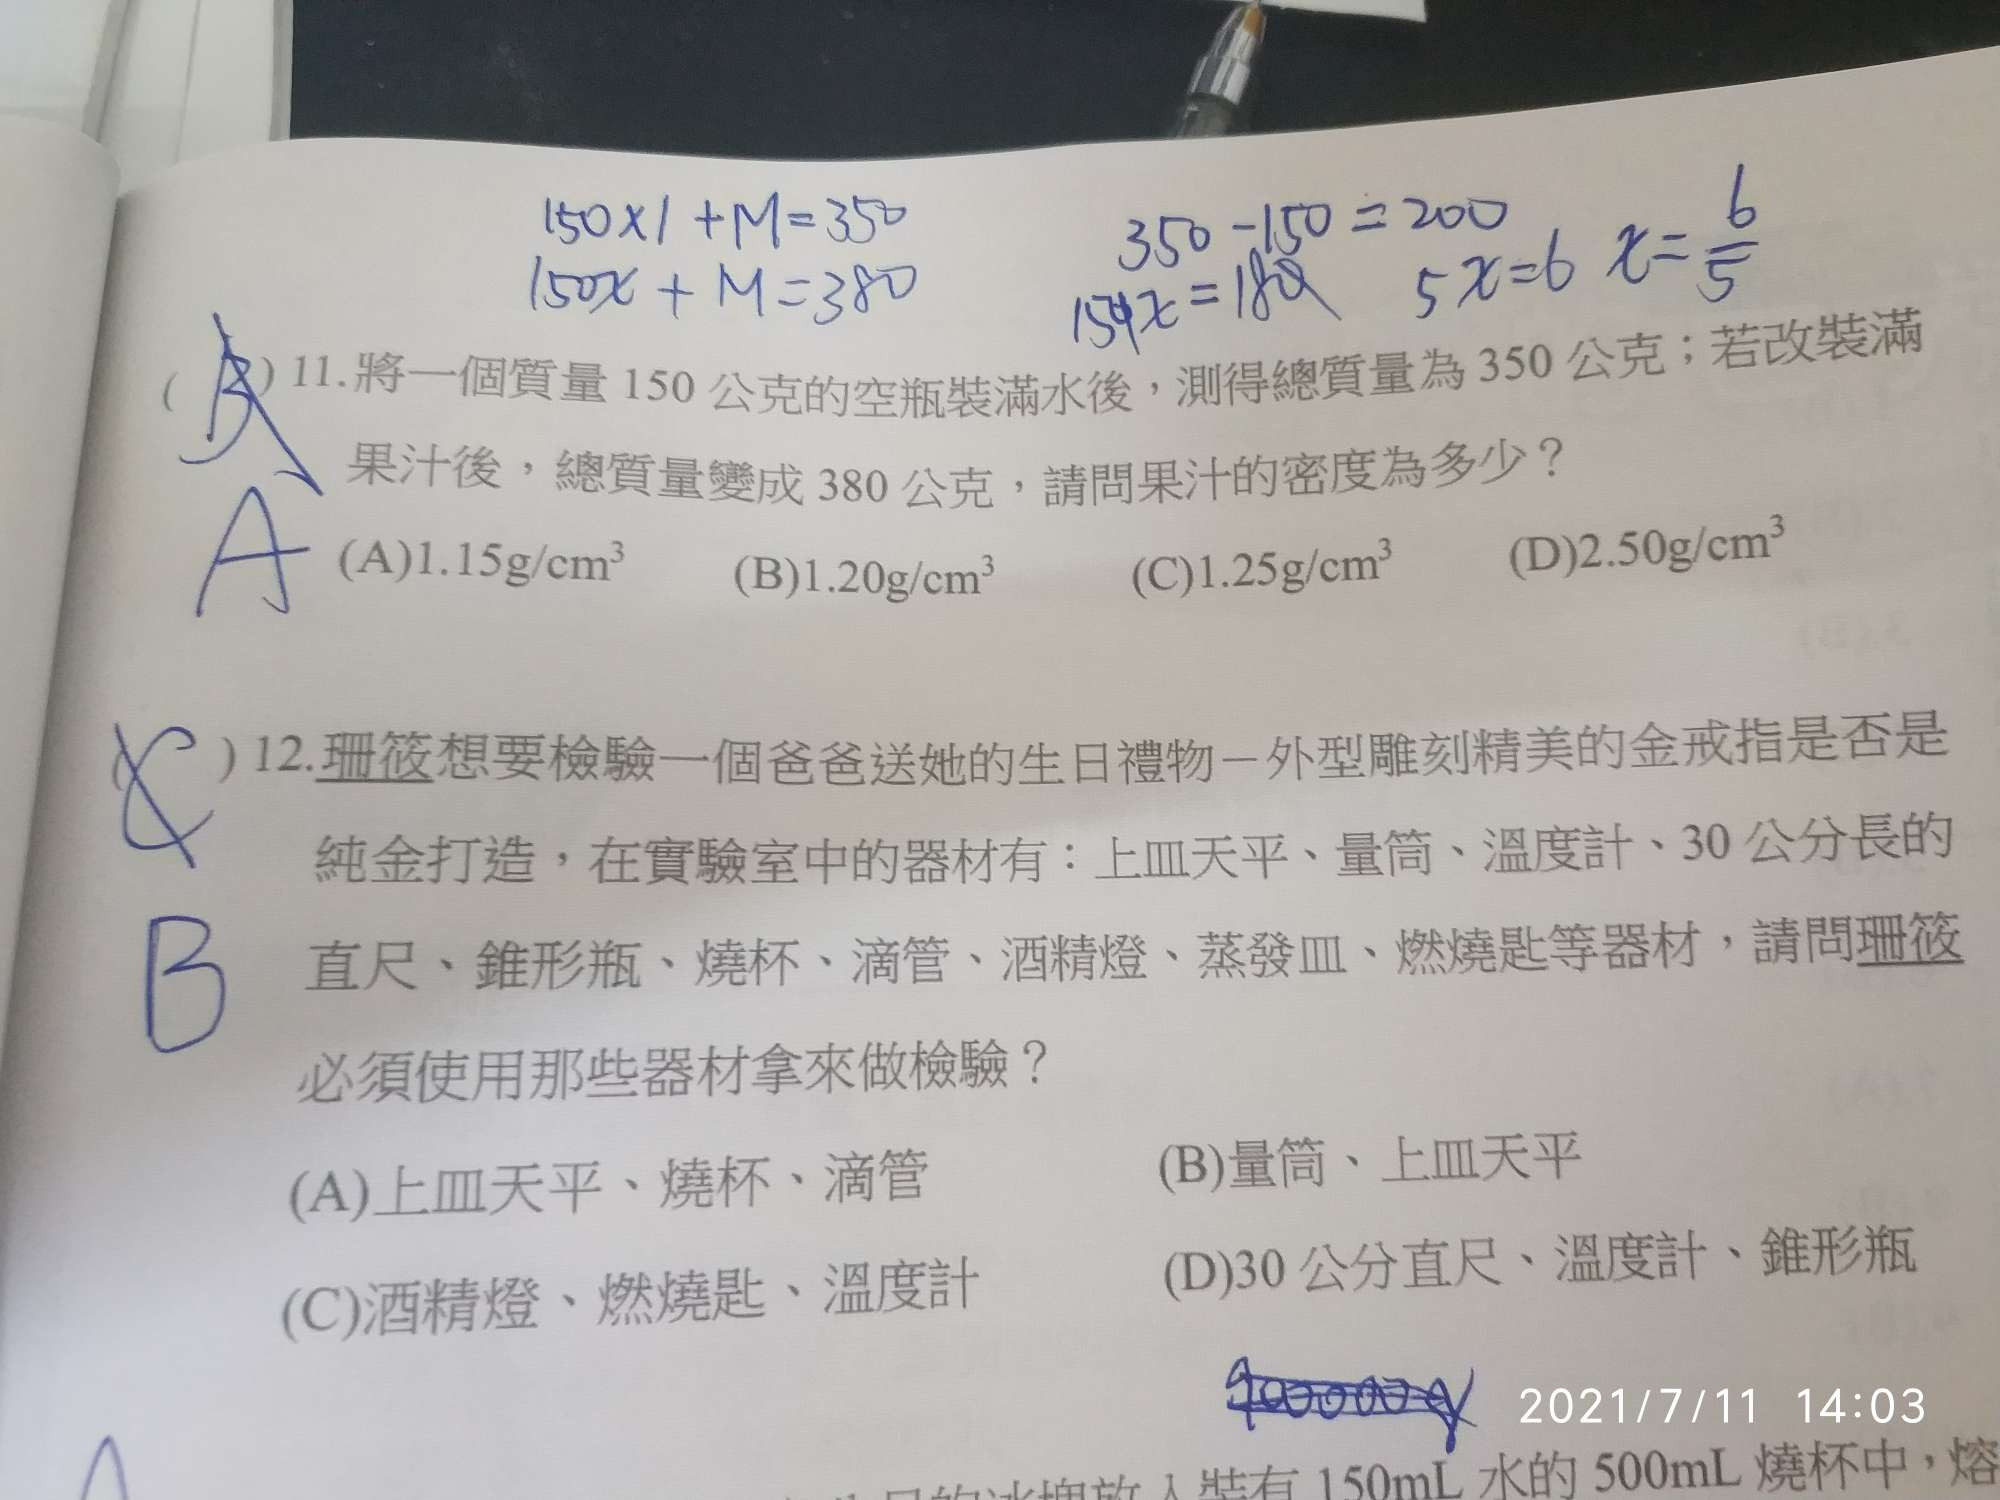 150×1+M=350
150x+M=380
350-150=200
150x=180
5x=6 x=6/5
(B)11.將一個質量 150 公克的空瓶裝滿水後，測得總質量為 350 公克；若改裝滿
果汁後，總質量變成 380 公克，請問果汁的密度為多少？
A
(A)1.15g/cm³ (B)1.20g/cm³ (C)1.25g/cm³ (D)2.50g/cm³
(C)12.珊筱想要檢驗一個爸爸送她的生日禮物－外型雕刻精美的金戒指是否是
純金打造，在實驗室中的器材有：上皿天平、量筒、溫度計、30 公分長的
B
直尺、錐形瓶、燒杯、滴管、酒精燈、蒸發皿、燃燒匙等器材，請問珊筱
必須使用那些器材拿來做檢驗？
(A)上皿天平、燒杯、滴管 (B)量筒、上皿天平
(C)酒精燈、燃燒匙、溫度計 (D)30 公分直尺、溫度計、錐形瓶
2021/7/11 14:03
裝有 150mL 水的 500mL 燒杯中，熔